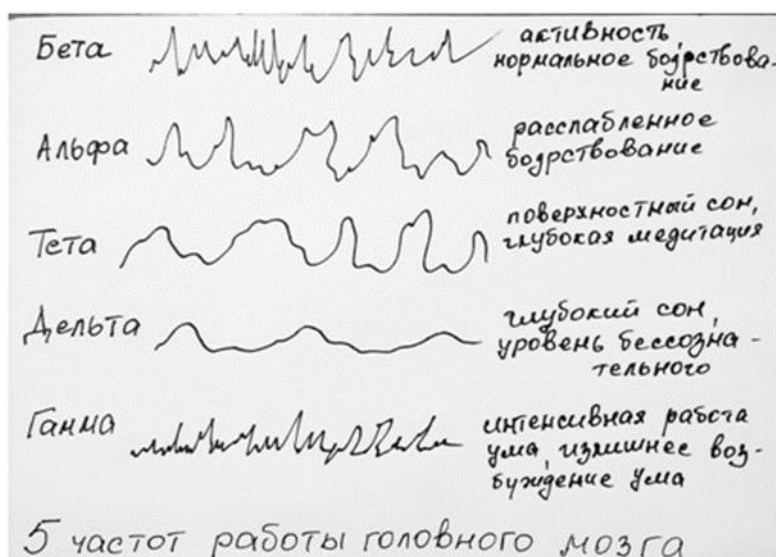 Бета
активность
нормальное бодрствова-
ние
Альфа
расслабленное
бодрствование
Тета
поверхностный сон,
глубокая медитация
Дельта
глубокий сон,
уровень бессозна-
тельного
Гамма
интенсивная работа
ума, излишнее воз-
буждение ума
5 частот работы головного мозга